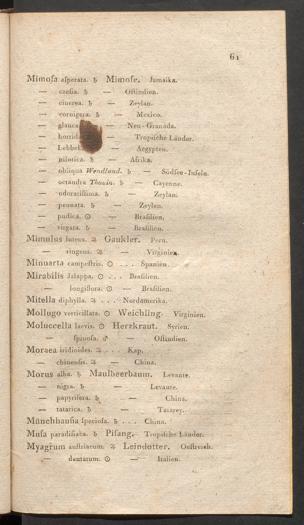 61
Mimosa asperata. ♄ Mimose. Jamaika.
— cæsia. ♄ — Ostindien.
— cinerea. ♄ — Zeylan.
— cornigera. ♄ — Mexico.
— glauca — Neu-Granada.
— horrida — Tropische Länder.
— Lebbek — Aegypten.
— nilotica. ♄ — Afrika.
— obliqua Wendland. ♄ — Südsee-Inseln.
— octandra Thouin. ♄ — Cayenne.
— odoratissima. ♄ — Zeylan.
— pennata. ♄ — Zeylan.
— pudica. ⊙ — Brasilien.
— virgata. ♄ — Brasilien.
Mimulus luteus. ♃ Gaukler. Peru.
— ringens. ♃ — Virginien.
Minuartia campestris. ⊙ ... Spanien.
Mirabilis Jalappa. ⊙ ... Brasilien.
— longiflora. ⊙ — Brasilien.
Mitella diphylla. ♃ ... Nordamerika.
Mollugo verticillata. ⊙ Weichling. Virginien.
Moluccella laevis. ⊙ Herzkraut. Syrien.
— spinosa. ♂ — Ostindien.
Moraea iridioides. ♃ ... Kap.
— chinensis. ♃ — China.
Morus alba. ♄ Maulbeerbaum. Levante.
— nigra. ♄ — Levante.
— papyrifera. ♄ — China.
— tatarica. ♄ — Tatarey.
Münchhausia speciosa. ♄ ... China.
Musa paradisiaca. ♄ Pisang. Tropische Länder.
Myagrum austriacum. ♃ Leindotter. Oestreich.
— dentatum. ⊙ — Italien.